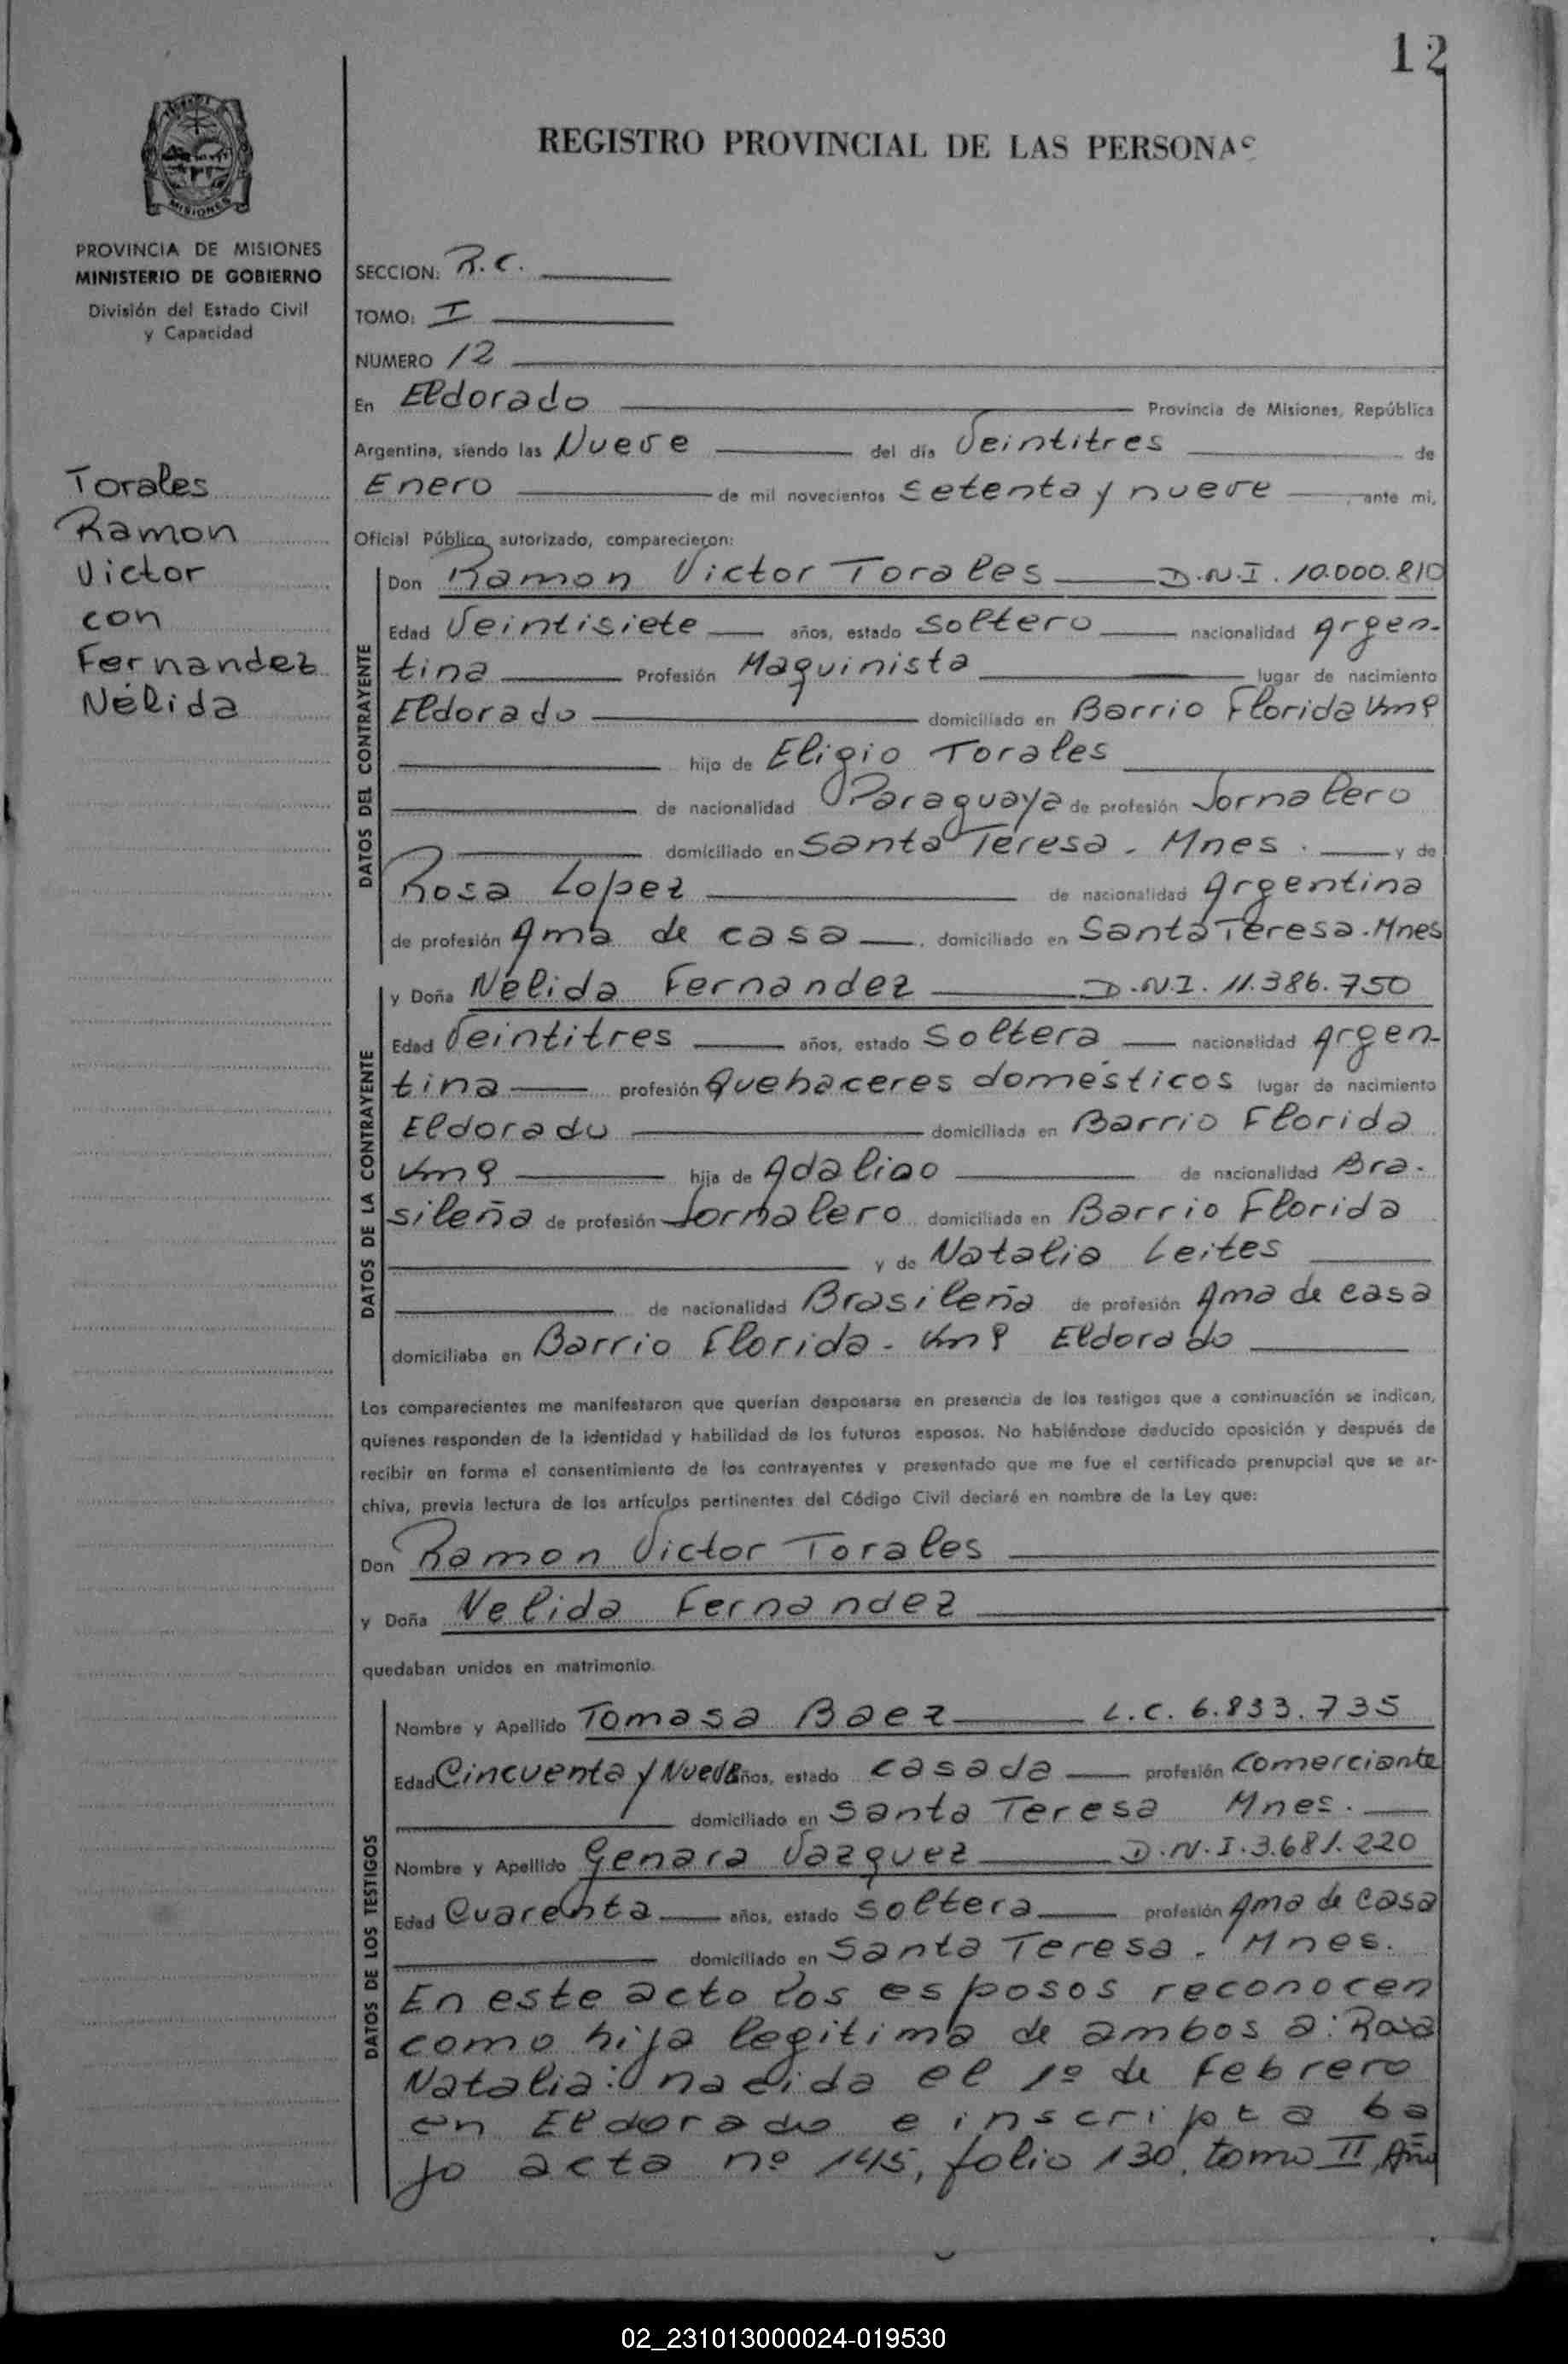 12
REGISTRO PROVINCIAL DE LAS PERSONAS
MISIONES
PROVINCIA DE MISIONES
MINISTERIO DE GOBIERNO
División del Estado Civil
y Capacidad
SECCION: R.C.
TOMO: I
NUMERO 12
En Eldorado Provincia de Misiones, República
Argentina, siendo las Nueve del día Veintitres de
Enero de mil novecientos setenta y nueve, ante mi,
Oficial Público autorizado, comparecieron:
Torales
Ramon
Victor
con
Fernandez
Nélida
DATOS DEL CONTRAYENTE
Don Ramon Victor Torales D.N.I. 10.000.810
Edad Veintisiete años, estado soltero nacionalidad Argen-
tina Profesión Maquinista lugar de nacimiento
Eldorado domiciliado en Barrio Florida Km 9
hijo de Eligio Torales
de nacionalidad Paraguaya de profesión Jornalero
domiciliado en Santa Teresa. Mnes. y de
Rosa Lopez de nacionalidad Argentina
de profesión Ama de casa, domiciliada en Santa Teresa. Mnes
DATOS DE LA CONTRAYENTE
y Doña Nélida Fernandez D.N.I. 11.386.750
Edad Veintitres años, estado Soltera nacionalidad Argen-
tina profesión Quehaceres domésticos lugar de nacimiento
Eldorado domiciliada en Barrio Florida
Km 9 hija de de nacionalidad Bra-
sileña de profesión Jornalero domiciliada en Barrio Florida
y de Natalia Leites
de nacionalidad Brasileña de profesión Ama de casa
domiciliaba en Barrio Florida - Km 9 Eldorado
Los comparecientes me manifestaron que querían desposarse en presencia de los testigos que a continuación se indican,
quienes responden de la identidad y habilidad de los futuros esposos. No habiéndose deducido oposición y después de
recibir en forma el consentimiento de los contrayentes y presentado que me fue el certificado prenupcial que se ar-
chiva, previa lectura de los artículos pertinentes del Código Civil declaré en nombre de la Ley que:
Don Ramon Victor Torales
y Doña Nelida Fernandez
quedaban unidos en matrimonio.
DATOS DE LOS TESTIGOS
Nombre y Apellido Tomasa Baez L.C. 6.833.735
Edad Cincuenta y Nueve años, estado casada profesión Comerciante
domiciliado en Santa Teresa Mnes.
Nombre y Apellido Genara Vazquez D.N.I. 3.681.220
Edad Cuarenta años, estado soltera profesión Ama de casa
domiciliado en Santa Teresa. Mnes.
En este acto los esposos reconocen
como hija legitima de ambos a: Rosa
Natalia: nacida el 1º de Febrero
en Eldorado e inscripta ba
jo acta nº 145, folio 130, tomo II, Año
02_231013000024-019530